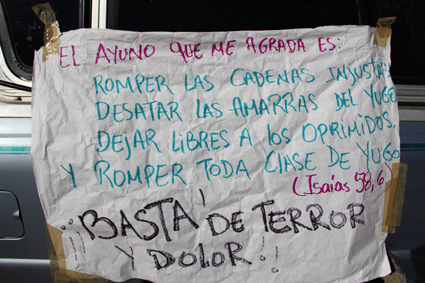 EL AYUNO QUE ME AGRADA ES:
ROMPER LAS CADENAS INJUSTAS
DESATAR LAS AMARRAS DEL YUGO
DEJAR LIBRES A LOS OPRIMIDOS,
Y ROMPER TODA CLASE DE YUGO
(Isaías 58,6
¡¡¡BASTA! DE TERROR
Y DOLOR!!